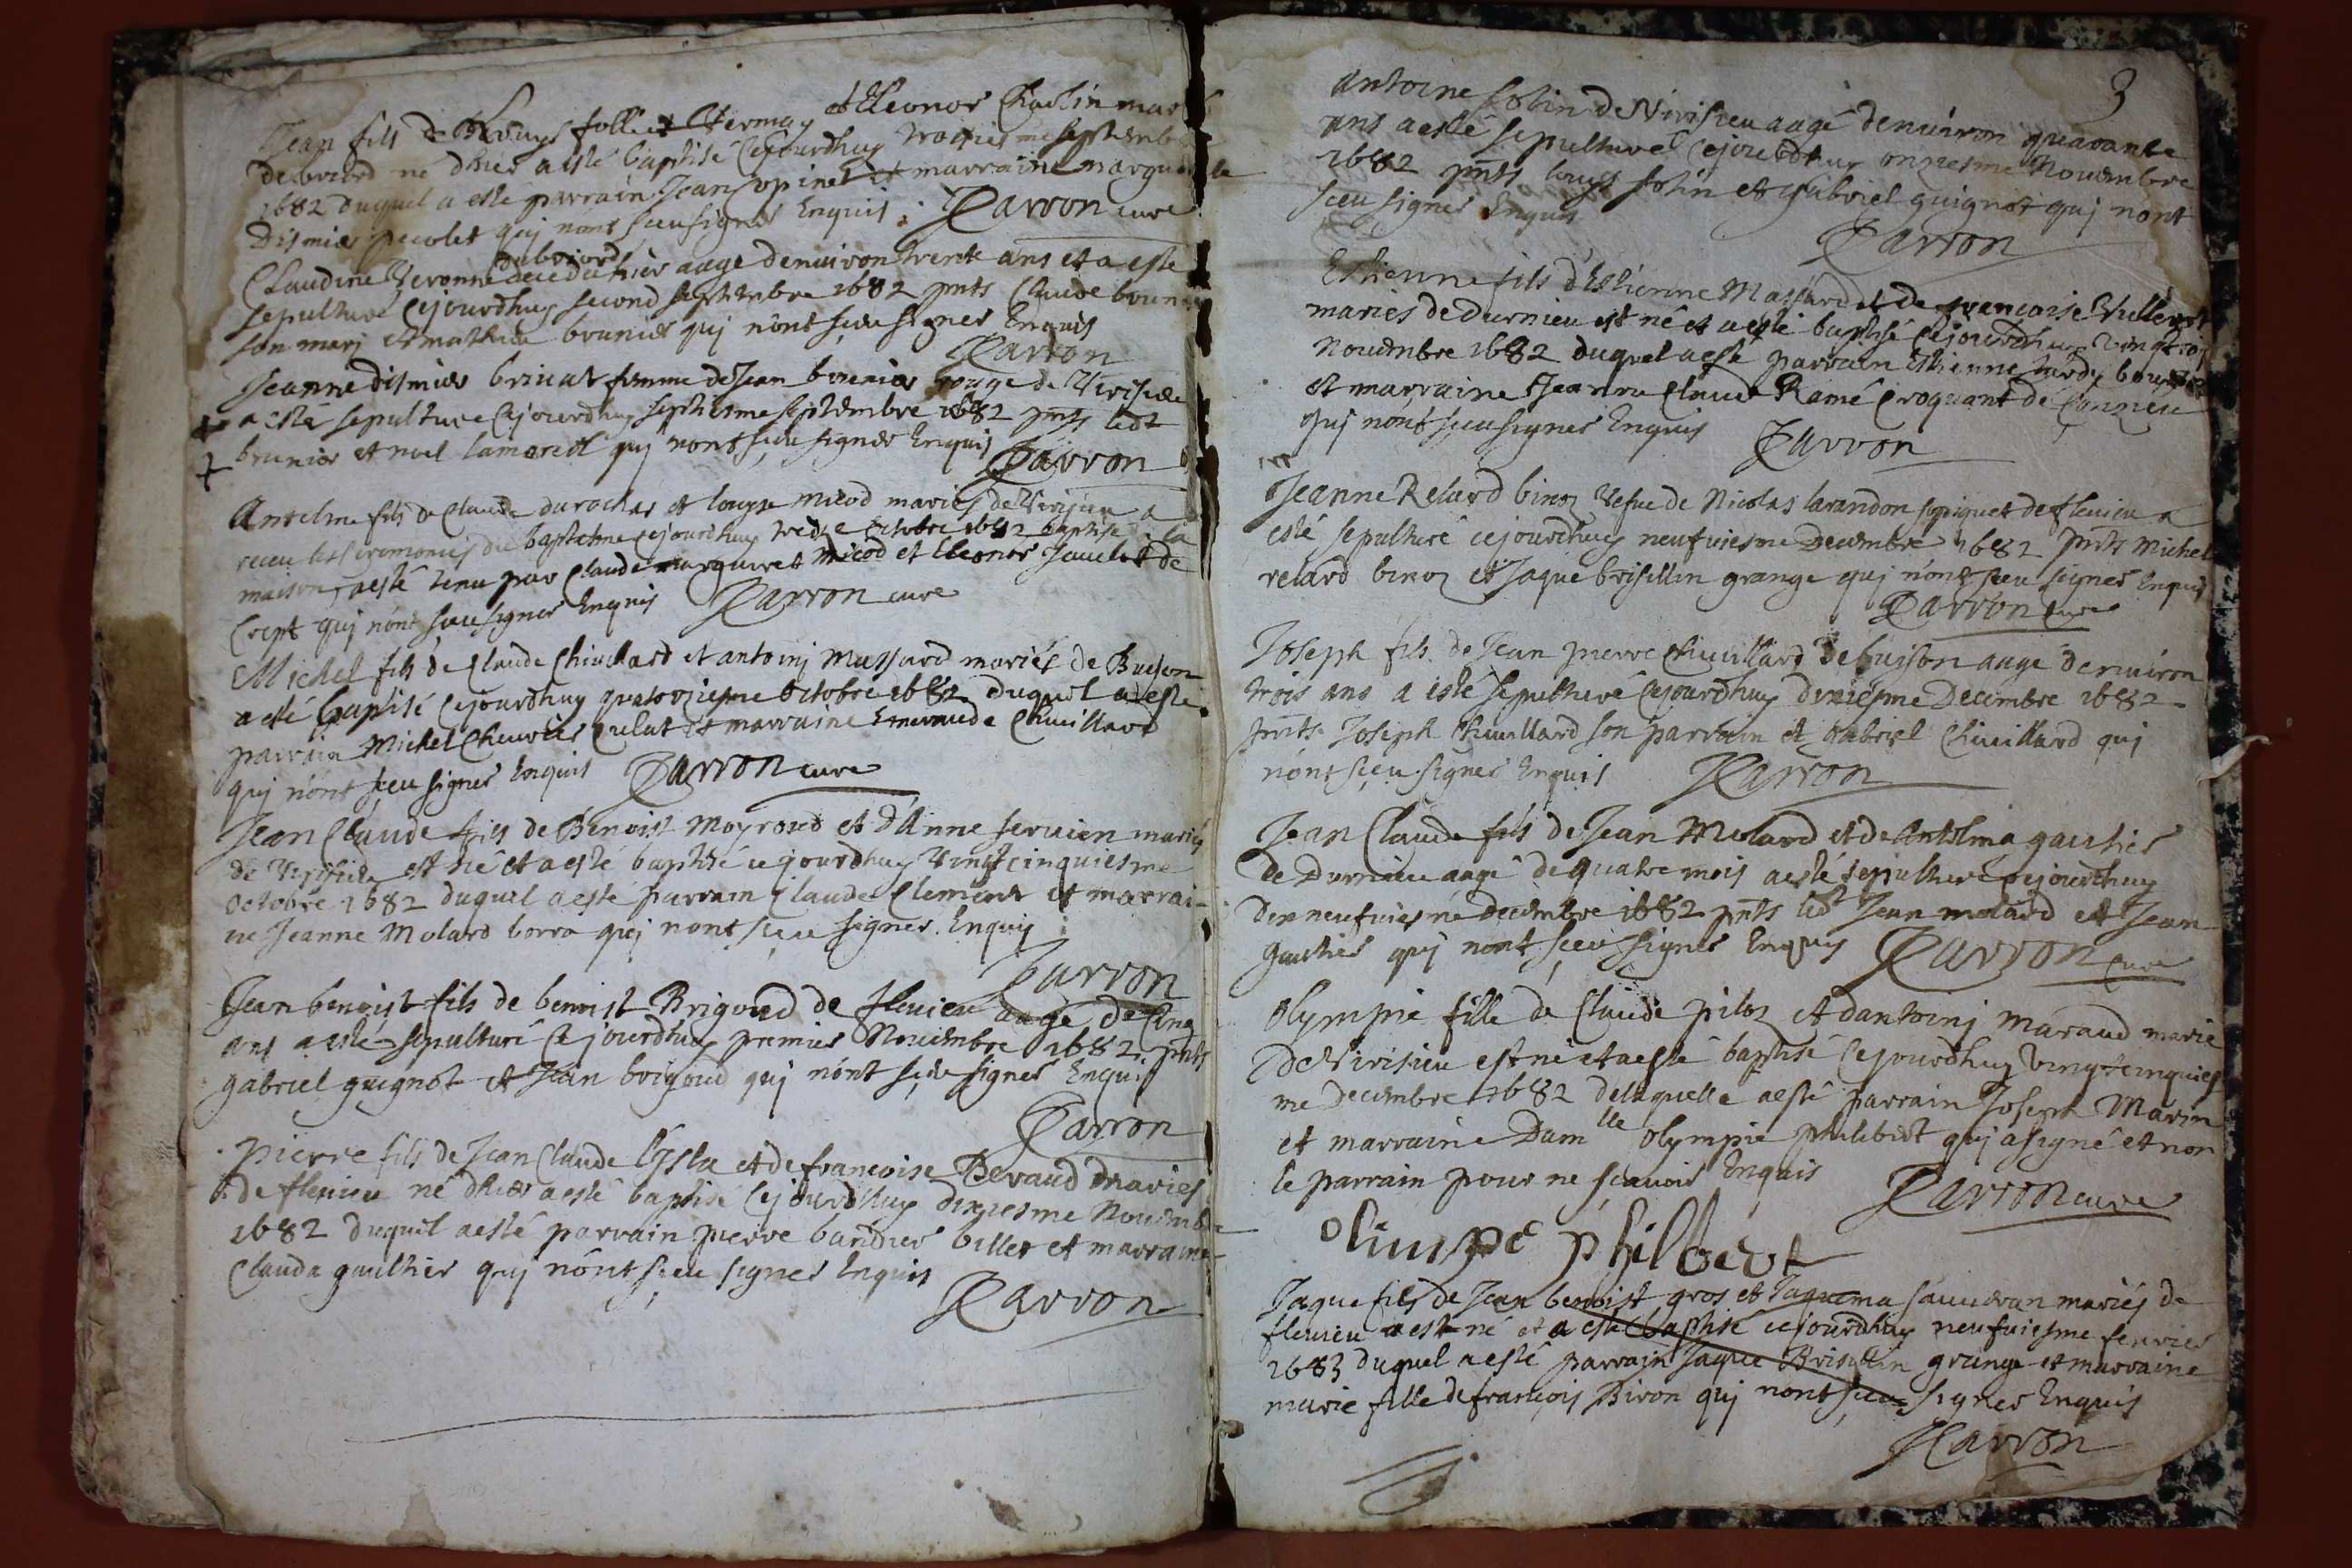 Jean fils de Louys folliet Vermay et Eleonor Chaslin mariés
de briord né dhier a esté baptisé cejourdhuy troisiesme septembre
1682 duquel a esté parrain Jean Copinet et marraine marguerite
Dismier pecolet qui nont sceu signer Enquis . Parron cure
du briord
Claudine Veronne decedé hier aagé denuiron trente ans et a esté
sepulturé cejourdhuy second septembre 1682 pnts Claude brunier
son mari et mathieu brunier qui nont sceu signer Enquis
Parron
Jeanne dismier brivat femme de Jean brunier rouge de Virisieu
a esté sepulturé cejourdhuy septiesme septembre 1682 pnts ledt
brunier et noel lamaredl qui nont sceu signer Enquis
Parron
Antelme fils de Claude durochat et louyse micod mariés de Virisieu a
receu les ceremonies du baptesme cejourdhuy treize octobre 1682 baptisé a la
maison, a esté tenu par Claude margueret micod et Eleonor Jauclet de
Crept qui nont sceu signer Enquis Parron cure
Michel fils de Claude Chiuillard et antoini Massard mariés de Buison
a esté baptisé cejourdhuy quatorziesme octobre 1682 duquel a esté
parrain Michel Cheurier culat et marraine Emeraude Chiuillard
qui nont sceu signer Enquis Parron cure
Jean Claude fils de Benoist Moyroud et d'Anne seruien mariés
de Virisieu est né et a esté baptisé cejourdhuy Vingt cinquiesme
octobre 1682 duquel a esté parrain Claude Clement et marrai-
ne Jeanne Molard borra qui nont sceu signer Enquis
Parron
Jean benoist fils de benoist Brigoud de fleuieu aagé de cinq
ans a esté sepulturé cejourdhuy premier Nouembre 1682 pnts
gabriel guignot et Jean brigoud qui nont sceu signer Enquis
Parron
Pierre fils de Jean Claude Lysla et de francoise Beraud mariés
de fleuieu né dhier a esté baptisé cejourdhuy dixiesme Nouembre
1682 duquel a esté parrain pierre bardier billet et marraine
Clauda gaulthier qui nont sceu signer Enquis
Parron
3
Antoine Solin de Virisieu aagé denuiron quarante
ans a esté sepulturé cejourdhuy onziesme Nouembre
1682 pnts louys solin et gabriel guignot qui nont
sceu signer Enquis
Parron
Estienne fils d'Estienne Massard et de francoise Vullerot
mariés de Durnieu est né et a esté baptisé cejourdhuy Vingt trois
Nouembre 1682 duquel a esté parrain Estienne tardy
et marraine Jeanne Claude Ramé Croquant de Conzieu
qui nont sceu signer Enquis
Parron
Jeanne Relard binoz Vefue de Nicolas larandon de fleuieu a
esté sepulturé cejourdhuy neufuiesme Decembre 1682 pnts Michel
relard binoz et Jaque brisillin grange qui nont sceu signer Enquis
Parron cure
Joseph fils de Jean pierre Chiuillard de buison aagé denuiron
trois ans a esté sepulturé cejourdhuy dixiesme Decembre 1682
pnts Joseph Chiuillard son parrain et gabriel Chiuillard qui
nont sceu signer Enquis Parron
Jean Claude fils de Jean Molard et de Antelma gaulties
de Durnieu aagé de quatre mois a esté sepulturé cejourdhuy
dixneufuiesme decembre 1682 pnts ledt Jean molard et Jean
gaultier qui nont sceu signer Enquis Parron cure
Olympie fille de Claude piloz et dantoini maraud marie
de Virisieu est né et a esté baptisé cejourdhuy Vingt cinquies
me decembre 1682 delaquelle a esté parrain Joseph Marin
et marraine Damlle olympie philibert qui a signé et non
le parrain pour ne scauoir Enquis
Parron cure
olimpe philbert
Jaque fils de Jean benoist gros et Jaquema mariés de
fleuieu est né et a esté baptisé cejourdhuy neufuiesme feurier
1683 duquel a esté parrain Jaque Brisillin grange et marraine
marie fille de francois Biron qui nont sceu signer Enquis
Parron